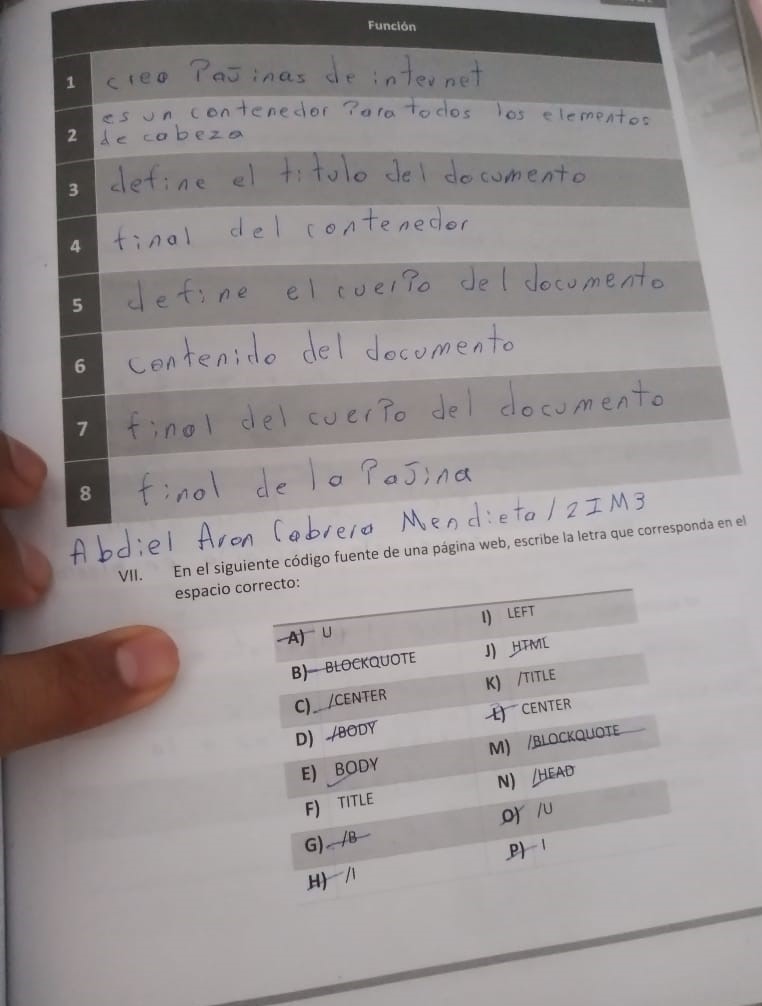 Función
1 creo Pajinas de internet
2 es un contenedor Para todos los elementos
de cabeza
3 define el titulo del documento
4 final del contenedor
5 define el cuerpo del documento
6 contenido del documento
7 final del cuerpo del documento
8 final de la Pajina
Abdiel Aron Cabrera Mendieta / 2IM3
VII. En el siguiente código fuente de una página web, escribe la letra que corresponda en el
espacio correcto:
A) U
I) LEFT
B) BLOCKQUOTE
J) HTML
C) /CENTER
K) /TITLE
D) /BODY
L) CENTER
E) BODY
M) /BLOCKQUOTE
F) TITLE
N) /HEAD
G) /B
O) /U
H) /I
P) I